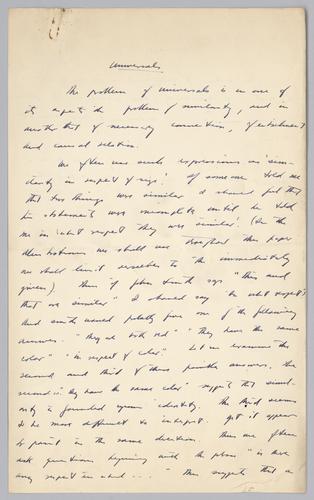 Universals
The problem of universals is in one of
its aspects the problem of similarity, and in
another that of necessary connection, of entailment
and causal relation.
We often use such expressions as 'simi-
larity in respect of size'. If someone told me
that two things was similar I should feel that
his statement was incomplete until he told
me in what respect they were similar. (In the
throughout this paper
we shall limit ourselves to the immediately
given) Thus if John Smith says "this and
that are similar" I should say 'in what respect?'
And Smith would probably give one of the following
answers. "They are both red" "They have the same
color" "in respect of color". Let us examine the
second and third of these possible answers. The
second i.e. they have the same color" suggests that simil-
arity is founded upon identity. The third seems
to be most difficult to interpret. yet it appears
to point in the same direction. Thus one often
asks questions beginning with the phrase "is there
any respect in which ... " This suggests that a